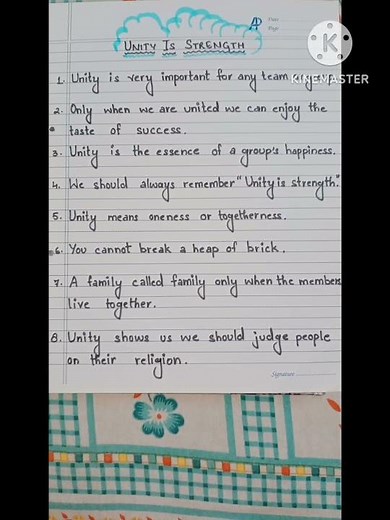 Date
Page
UNITY IS STRENGTH
KINEMASTER
1. Unity is very important for any team
2. Only when we are united we can enjoy the
taste of success.
3. Unity is the essence of a group's happiness.
4. We should always remember "Unity is strength".
5. Unity means oneness or togetherness.
6. You cannot break a heap of brick.
7. A family called family only when the members
live together.
8. Unity shows us we should judge people
on their religion.
Signature